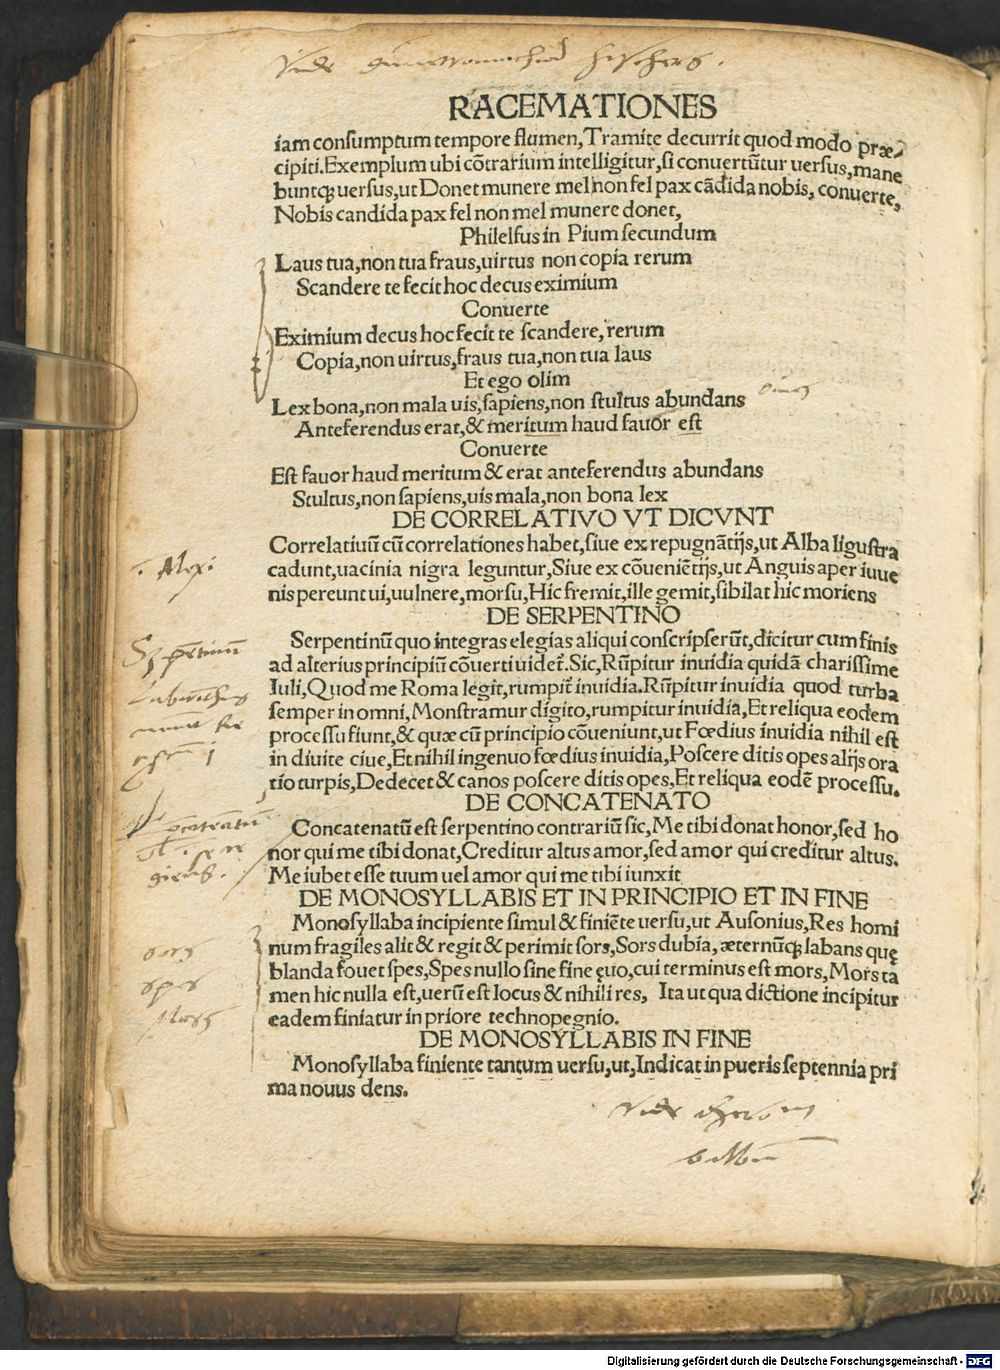 Vide
RACEMATIONES
iam consumptum tempore flumen, Tramite decurrit quod modo præ-
cipiti. Exemplum ubi cōtrarium intelligitur, si conuertūtur uersus, mane
buntq; uersus, ut Donet munere mel non fel pax cādida nobis, conuerte,
Nobis candida pax fel non mel munere donet,
Philelfus in Pium secundum
Laus tua, non tua fraus, uirtus non copia rerum
Scandere te fecit hoc decus eximium
Conuerte
Eximium decus hoc fecit te scandere, rerum
Copia, non uirtus, fraus tua, non tua laus
Et ego olim
Lex bona, non mala uis, sapiens, non stultus abundans
Anteferendus erat, & meritum haud fauor est
Conuerte
Est fauor haud meritum & erat anteferendus abundans
Stultus, non sapiens, uis mala, non bona lex
DE CORRELATIVO VT DICVNT
Correlatiuū cū correlationes habet, siue ex repugnātijs, ut Alba ligustra
cadunt, uacinia nigra leguntur, Siue ex cōueniētijs, ut Anguis aper iuue
nis pereunt ui, uulnere, morsu, Hic fremit, ille gemit, sibilat hic moriens
DE SERPENTINO
Serpentinū quo integras elegias aliqui conscripserūt, dicitur cum finis
ad alterius principiū cōuerti uidet̃. Sic, Rūpitur inuidia quidā charissime
Iuli, Quod me Roma legit, rumpit̃ inuidia. Rūpitur inuidia quod turba
semper in omni, Monstramur digito, rumpitur inuidia, Et reliqua eodem
processu fiunt, & quæ cū principio cōueniunt, ut Fœdius inuidia nihil est
in diuite ciue, Et nihil ingenuo fœdius inuidia, Poscere ditis opes alijs ora
tio turpis, Dedecet & canos poscere ditis opes, Et reliqua eodē processu.
DE CONCATENATO
Concatenatū est serpentino contrariū sic, Me tibi donat honor, sed ho
nor qui me tibi donat, Creditur altus amor, sed amor qui creditur altus.
Me iubet esse tuum uel amor qui me tibi iunxit
DE MONOSYLLABIS ET IN PRINCIPIO ET IN FINE
Monosyllaba incipiente simul & finiēte uersu, ut Ausonius, Res homi
num fragiles alit & regit & perimit sors, Sors dubia, æternūq; labans quę
blanda fouet spes, Spes nullo sine fine ęuo, cui terminus est mors, Mors ta
men hic nulla est, uerū est locus & nihili res, Ita ut qua dictione incipitur
eadem finiatur in priore technopegnio.
DE MONOSYLLABIS IN FINE
Monosyllaba finiente tantum uersu, ut, Indicat in pueris septennia pri
ma nouus dens.
Vide
sors
spes
Mors
Digitalisierung gefördert durch die Deutsche Forschungsgemeinschaft - DFG